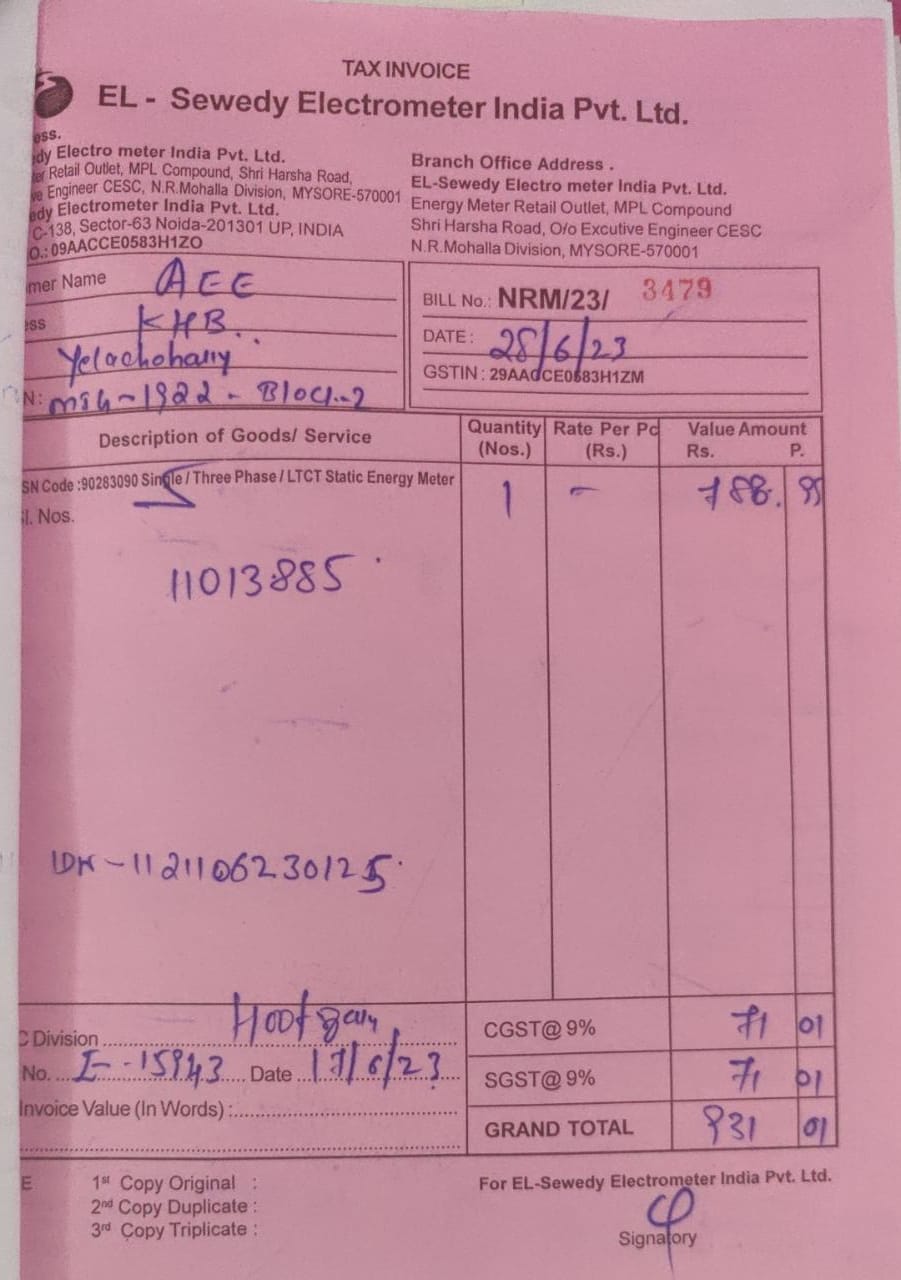 TAX INVOICE
EL - Sewedy Electrometer India Pvt. Ltd.
ess.
dy Electro meter India Pvt. Ltd.
er Retail Outlet, MPL Compound, Shri Harsha Road,
ve Engineer CESC, N.R.Mohalla Division, MYSORE-570001
edy Electrometer India Pvt. Ltd.
C-138, Sector-63 Noida-201301 UP, INDIA
O.: 09AACCE0583H1ZO
Branch Office Address .
EL-Sewedy Electro meter India Pvt. Ltd.
Energy Meter Retail Outlet, MPL Compound
Shri Harsha Road, O/o Excutive Engineer CESC
N.R.Mohalla Division, MYSORE-570001
mer Name AEE
ess KHB.
Yelachohally
N: MIG-1922 - Block-2
BILL No.: NRM/23/ 3479
DATE : 28/6/23
GSTIN : 29AACCE0583H1ZM
Description of Goods/ Service Quantity (Nos.) Rate Per Pc (Rs.) Value Amount Rs. P.
SN Code :90283090 Single / Three Phase / LTCT Static Energy Meter 1 - 788. 99
l. Nos.
11013885
IDN-1121106230125
C Division Hootgally
No. I-15943 Date 17/6/23
Invoice Value (In Words) :
CGST@ 9% 71 01
SGST@ 9% 71 01
GRAND TOTAL 931 01
E 1st Copy Original :
2nd Copy Duplicate :
3rd Copy Triplicate :
For EL-Sewedy Electrometer India Pvt. Ltd.
Signatory